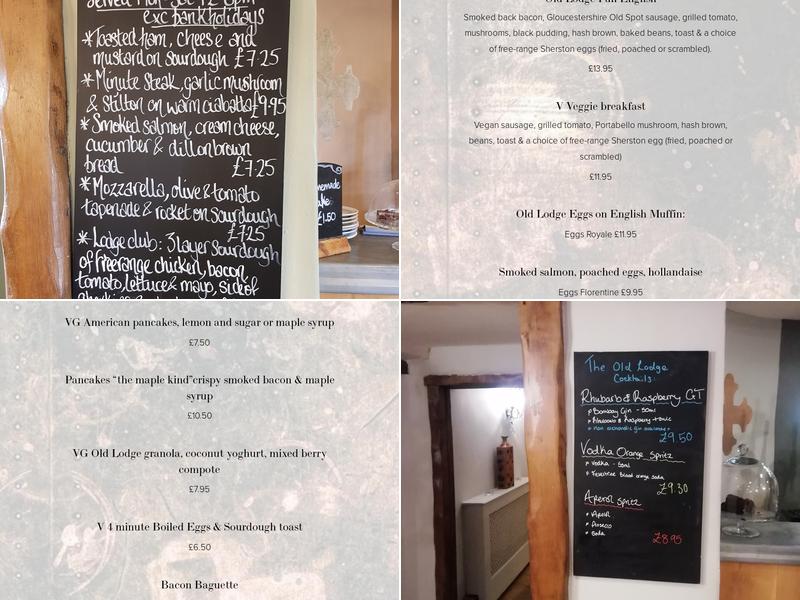 Served Mon-Sat 12-3pm
exc bank holidays
* Toasted ham, cheese and
mustard on sourdough £7.25
* Minute Steak, garlic mushroom
& Stilton on warm ciabatta £9.95
* Smoked salmon, cream cheese,
cucumber & dill on brown
bread £7.25
* Mozzarella, olive & tomato
tapenade & rocket on sourdough
£7.25
* Lodge club: 3 layer sourdough
of freerange chicken, bacon,
tomato, lettuce & mayo, side of
£1.50
Old Lodge Full English
Smoked back bacon, Gloucestershire Old Spot sausage, grilled tomato,
mushrooms, black pudding, hash brown, baked beans, toast & a choice
of free-range Sherston eggs (fried, poached or scrambled).
£13.95
V Veggie breakfast
Vegan sausage, grilled tomato, Portabello mushroom, hash brown,
beans, toast & a choice of free-range Sherston egg (fried, poached or
scrambled)
£11.95
Old Lodge Eggs on English Muffin:
Eggs Royale £11.95
Smoked salmon, poached eggs, hollandaise
Eggs Florentine £9.95
VG American pancakes, lemon and sugar or maple syrup
£7.50
Pancakes “the maple kind”crispy smoked bacon & maple
syrup
£10.50
VG Old Lodge granola, coconut yoghurt, mixed berry
compote
£7.95
V 4 minute Boiled Eggs & Sourdough toast
£6.50
Bacon Baguette
The Old Lodge
Cocktails:
Rhubarb & Raspberry GT
Bombay Gin - 50ml
Rhubarb & Raspberry tonic
£9.50
Vodka Orange Spritz
Vodka - 50ml
blood orange soda
£9.30
Aperol Spritz
Aperol
Prosecco
Soda
£8.95